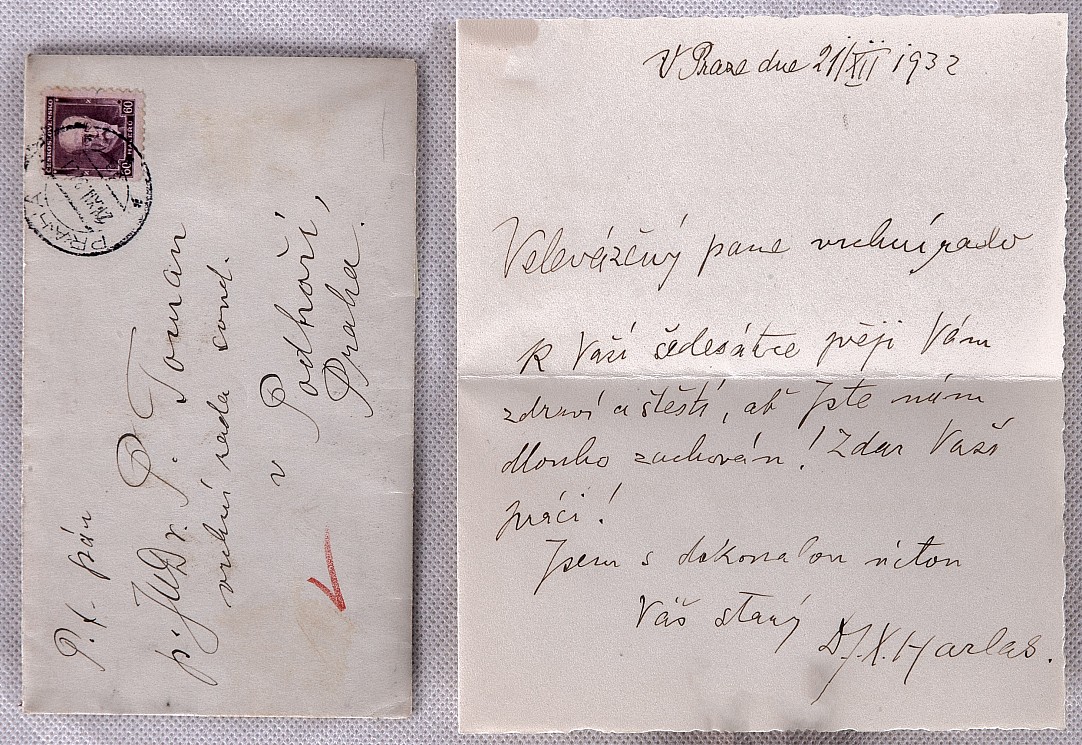 ČESKOSLOVENSKO
60 HALÉŘŮ 60
PRAHA
P. t. pán
p. JUDr. P. Toman
vrchní rada soud.
v Podhoří,
Praha.
V Praze dne 21/XII 1932
Velevážený pane vrchní rado
K Vaší šedesátce přeji Vám
zdraví a štěstí, ať jste nám
dlouho zachován! Zdar Vaší
práci!
Jsem s dokonalou úctou
Váš starý
Dr. F. X. Harlas.